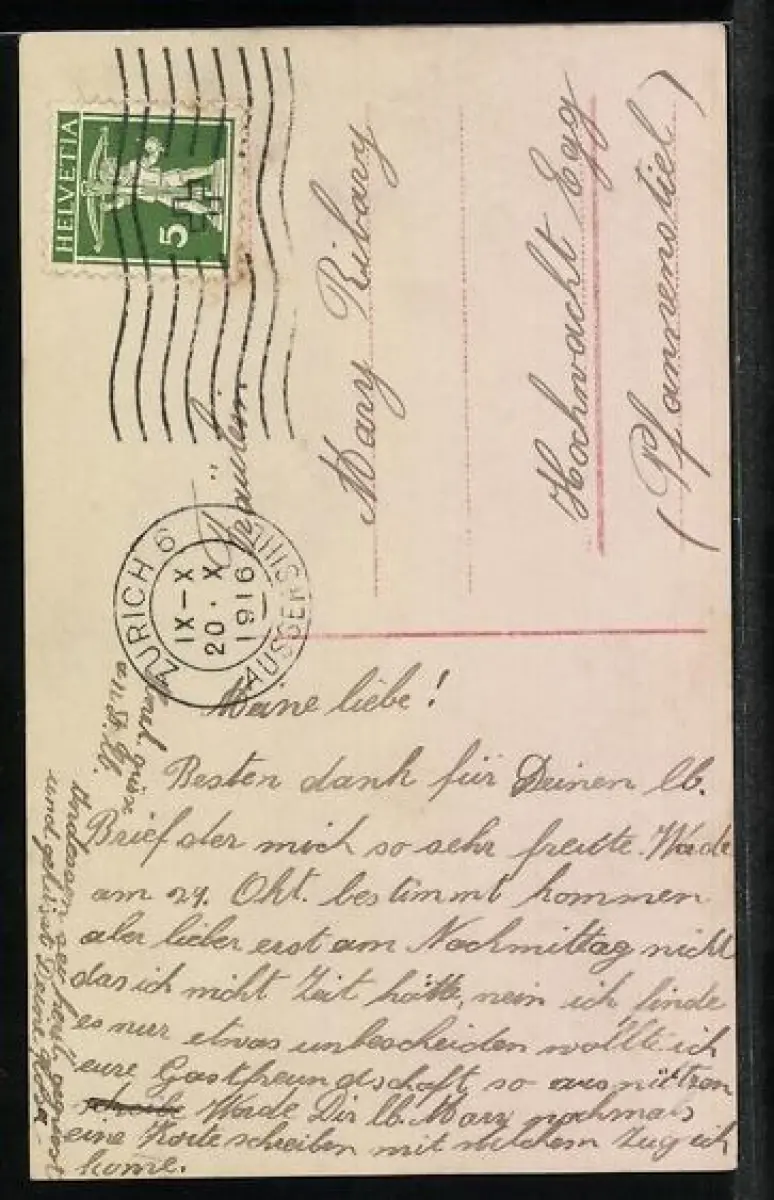 HELVETIA
5
ZÜRICH 6
IX-X
20. X
1916
AUSSERSIHL
Fräulein
Mary Ribary
Hochwacht Egg
(Pfannenstiel)
Meine liebe!
Besten dank für Deinen lb.
Brief der mich so sehr freute. Werde
am 24. Okt. bestimmt kommen
aber lieber erst am Nachmittag nicht
das ich nicht Zeit hätte, nein ich finde
es nur etwas unbescheiden wollte ich
eure Gastfreundschaft so ausnützen
Werde Dir lb. Mary nochmals
eine Karte schreiben mit welchem Zug ich
kome.
Unterdessen sei herzl. gegrüsst
und geküsst Deine Rosa